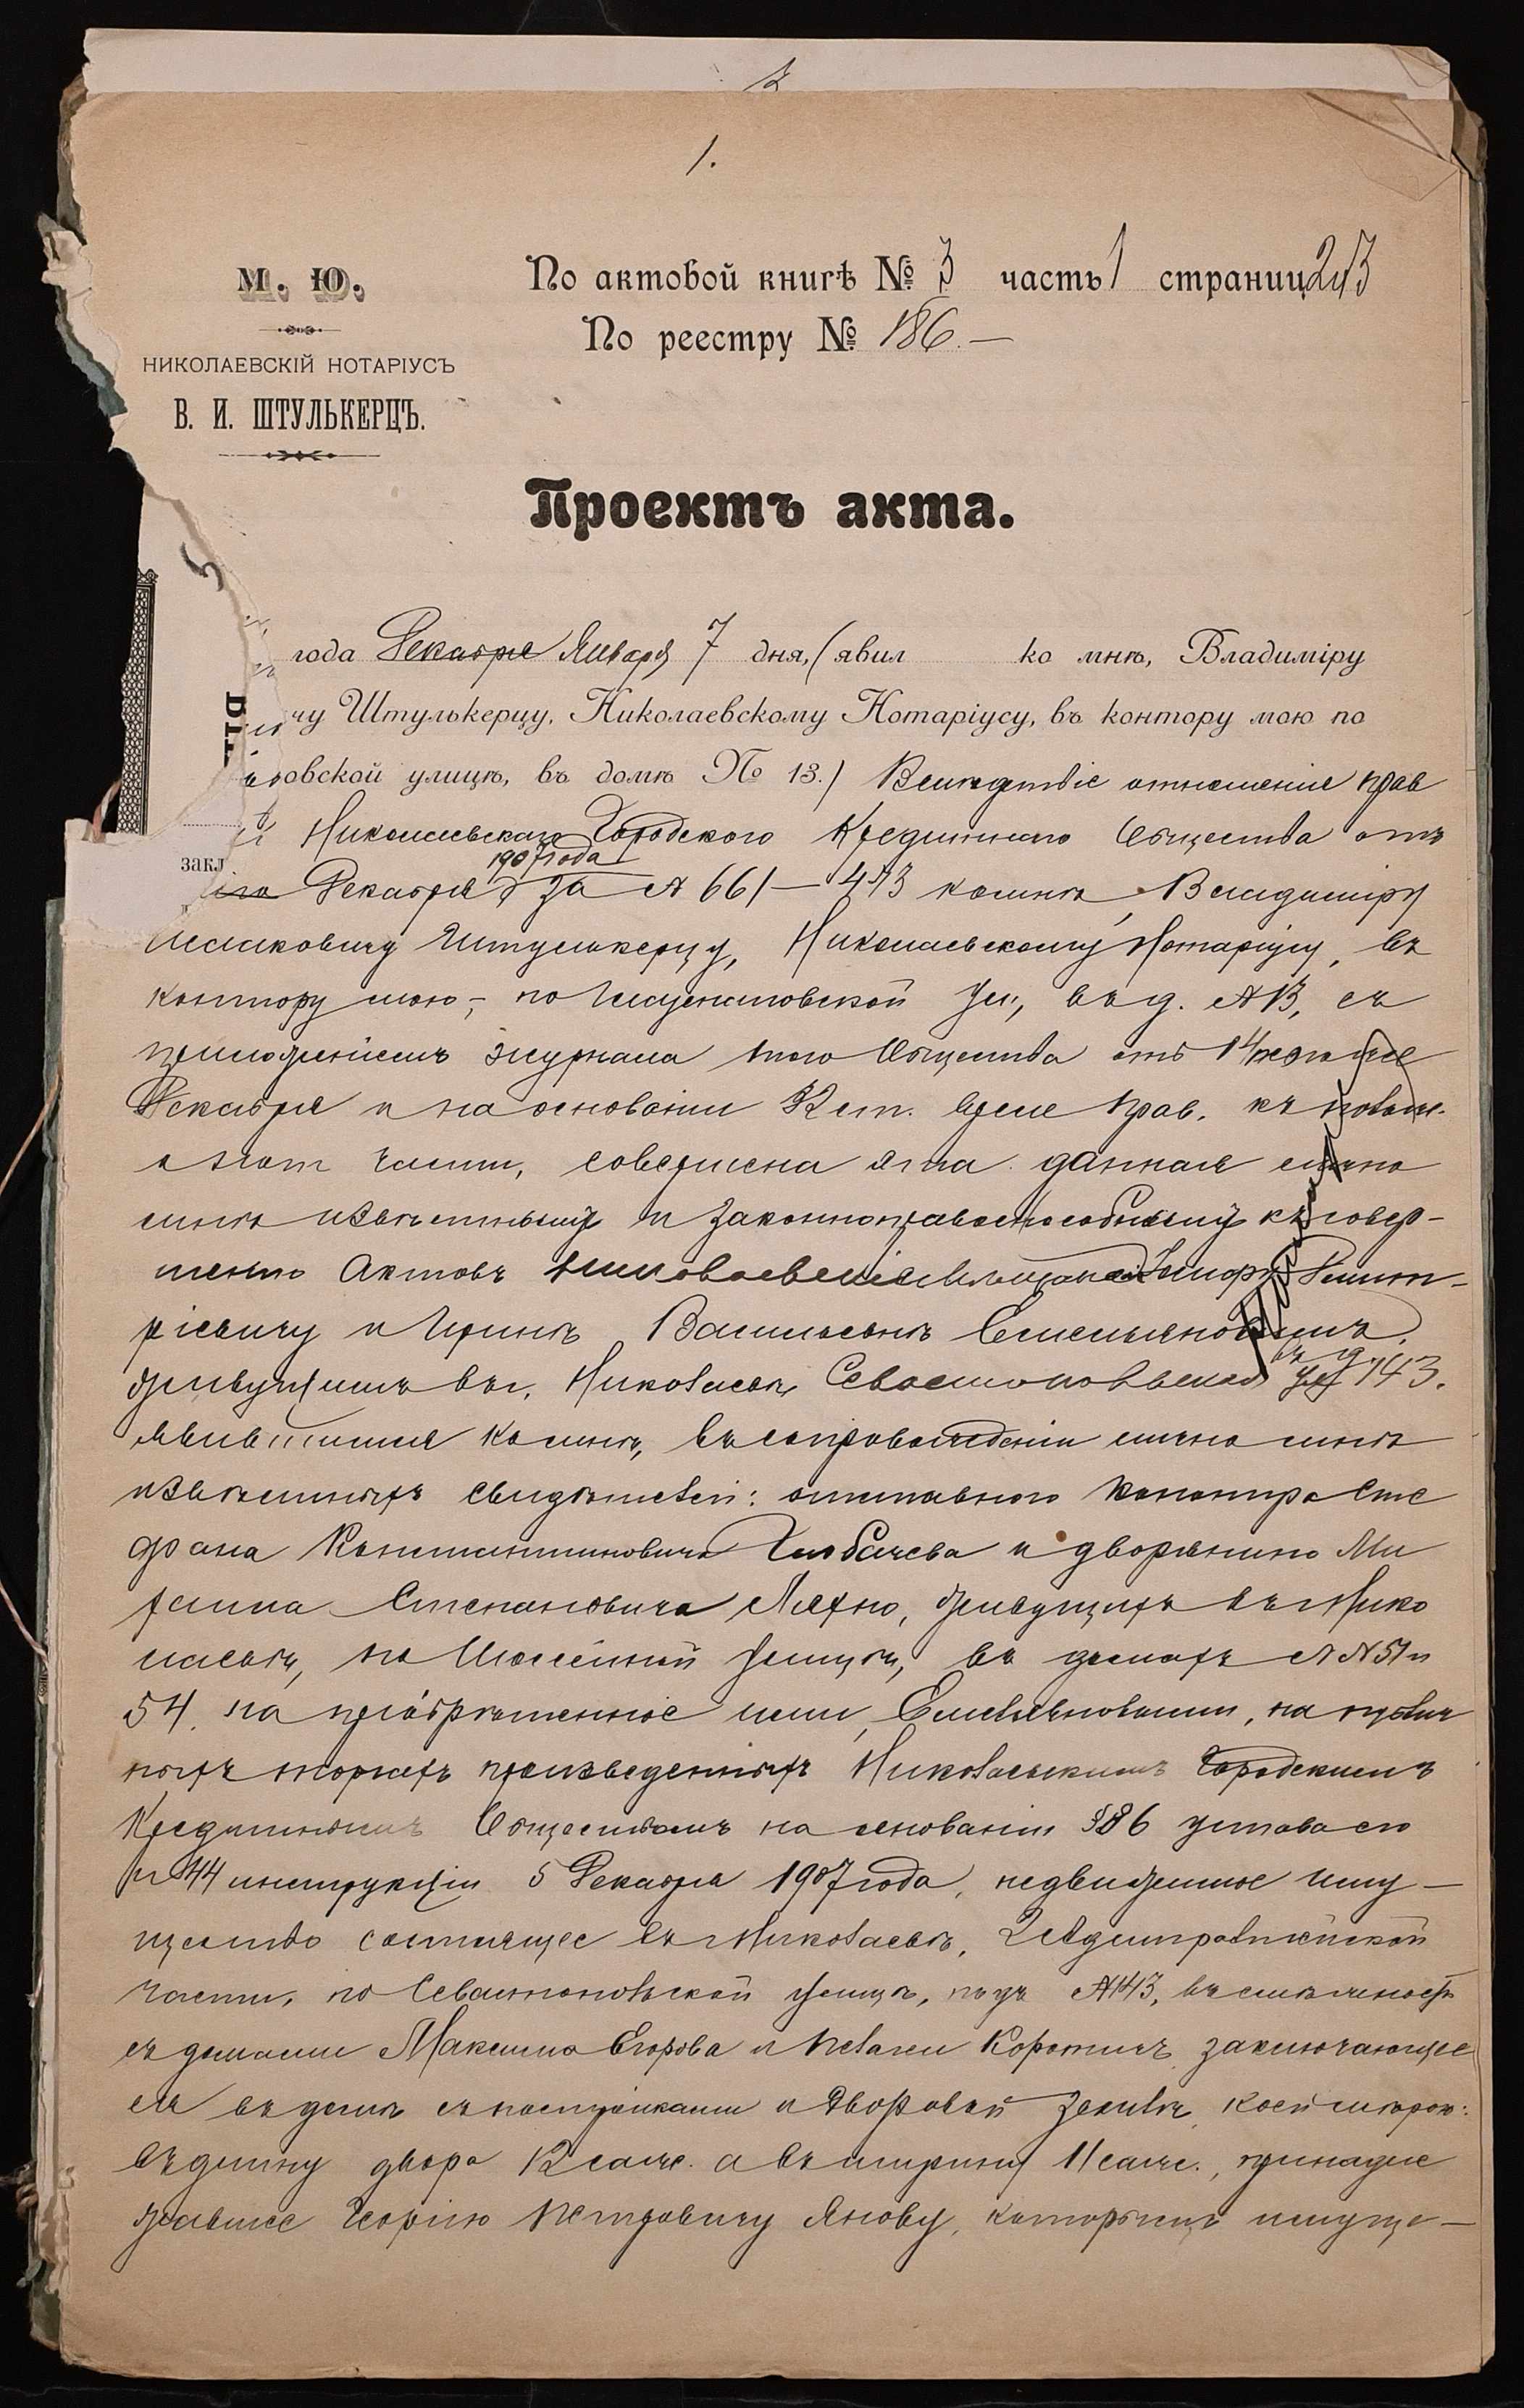 1.
М. Ю.
НИКОЛАЕВСКІЙ НОТАРІУСЪ
В. И. ШТУЛЬКЕРЦЪ.
По актовой книгѣ № 3 часть 1 страниц 213
По реестру № 186.—
Проектъ акта.
5
года Декабря Января 7 дня, (явил ко мнѣ, Владиміру
чу Штулькерцу, Николаевскому Нотаріусу, въ контору мою по
овской улицѣ, въ домѣ № 13.) Вслѣдствіе отношенія прав
Николаевскаго Городского Кредитнаго Общества отъ
закл
1907 года
Декабря за № 661—473 ко мнѣ, Владиміру
Исааковичу Штулькерцу, Николаевскому Нотаріусу, въ
контору мою, по ул., въ д. № 13, съ
приложеніемъ журнала того Общества отъ 14 того же
Декабря и на основаніи прав. къ
части, совершена эта данная лично
мнѣ извѣстнымъ и законноправоспособнымъ къ совер-
шенію актовъ Дмит-
ріевичу и Иринѣ Васильевнѣ Емельяновымъ,
живущимъ въ г. Николаевѣ, Севастопольской ул въ д 143.
явившимся ко мнѣ, въ сопровожденіи лично мнѣ
извѣстныхъ свидѣтелей: отставного Сте
фана Константиновича и дворянина Ми
хаила Степановича Ляхно, живущихъ въ г. Нико
лаевѣ, по улицѣ, въ домахъ № № 51 и
54, на пріобрѣтенное ими, Емельяновыми, на публич
ныхъ торгахъ произведенныхъ Николаевскимъ Городскимъ
Кредитнымъ Обществомъ на основаніи § 86 устава его
и 44 инструкціи 5 Декабря 1907 года, недвижимое иму—
щество состоящее въ г. Николаевѣ, 2 Адмиралтейской
части, по Севастопольской улицѣ, подъ № 143, въ смежности
съ домами Максима Егорова и Пелагеи заключающее
ся въ домѣ съ постройками и дворовой землѣ, коей мѣрою:
въ длину двора 12 саж. а въ ширину 11 саж., принадле
жавшее Георгію Петровичу Янову, которымъ имуще—